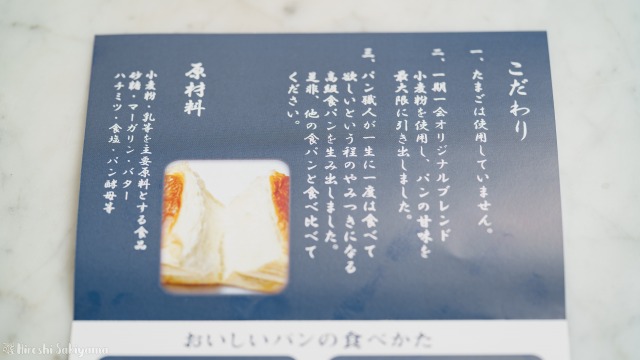 こだわり
一、たまごは使用していません。
二、一期一会オリジナルブレンド
小麦粉を使用し、パンの甘味を
最大限に引き出しました。
三、パン職人が一生に一度は食べて
欲しいという程のやみつきになる
高級食パンを生み出しました。
是非、他の食パンと食べ比べて
ください。
原材料
小麦粉・乳等を主要原料とする食品
砂糖・マーガリン・バター
ハチミツ・食塩・パン酵母等
おいしいパンの食べかた
Hiroshi Sakiyama